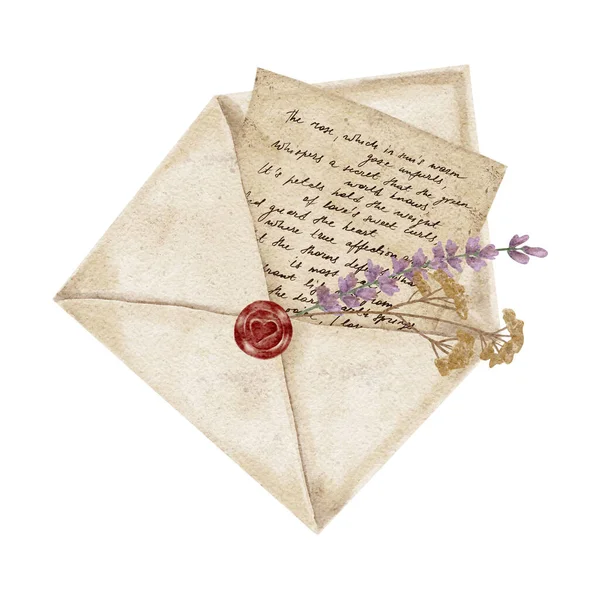 The rose, which in sun's warm
gaze unfurls,
whispers a secret that the green
world knows.
It's petals hold the weight
of love's sweet curls
nd guard the heart
where true affection
the thorns
is most
the dar springs